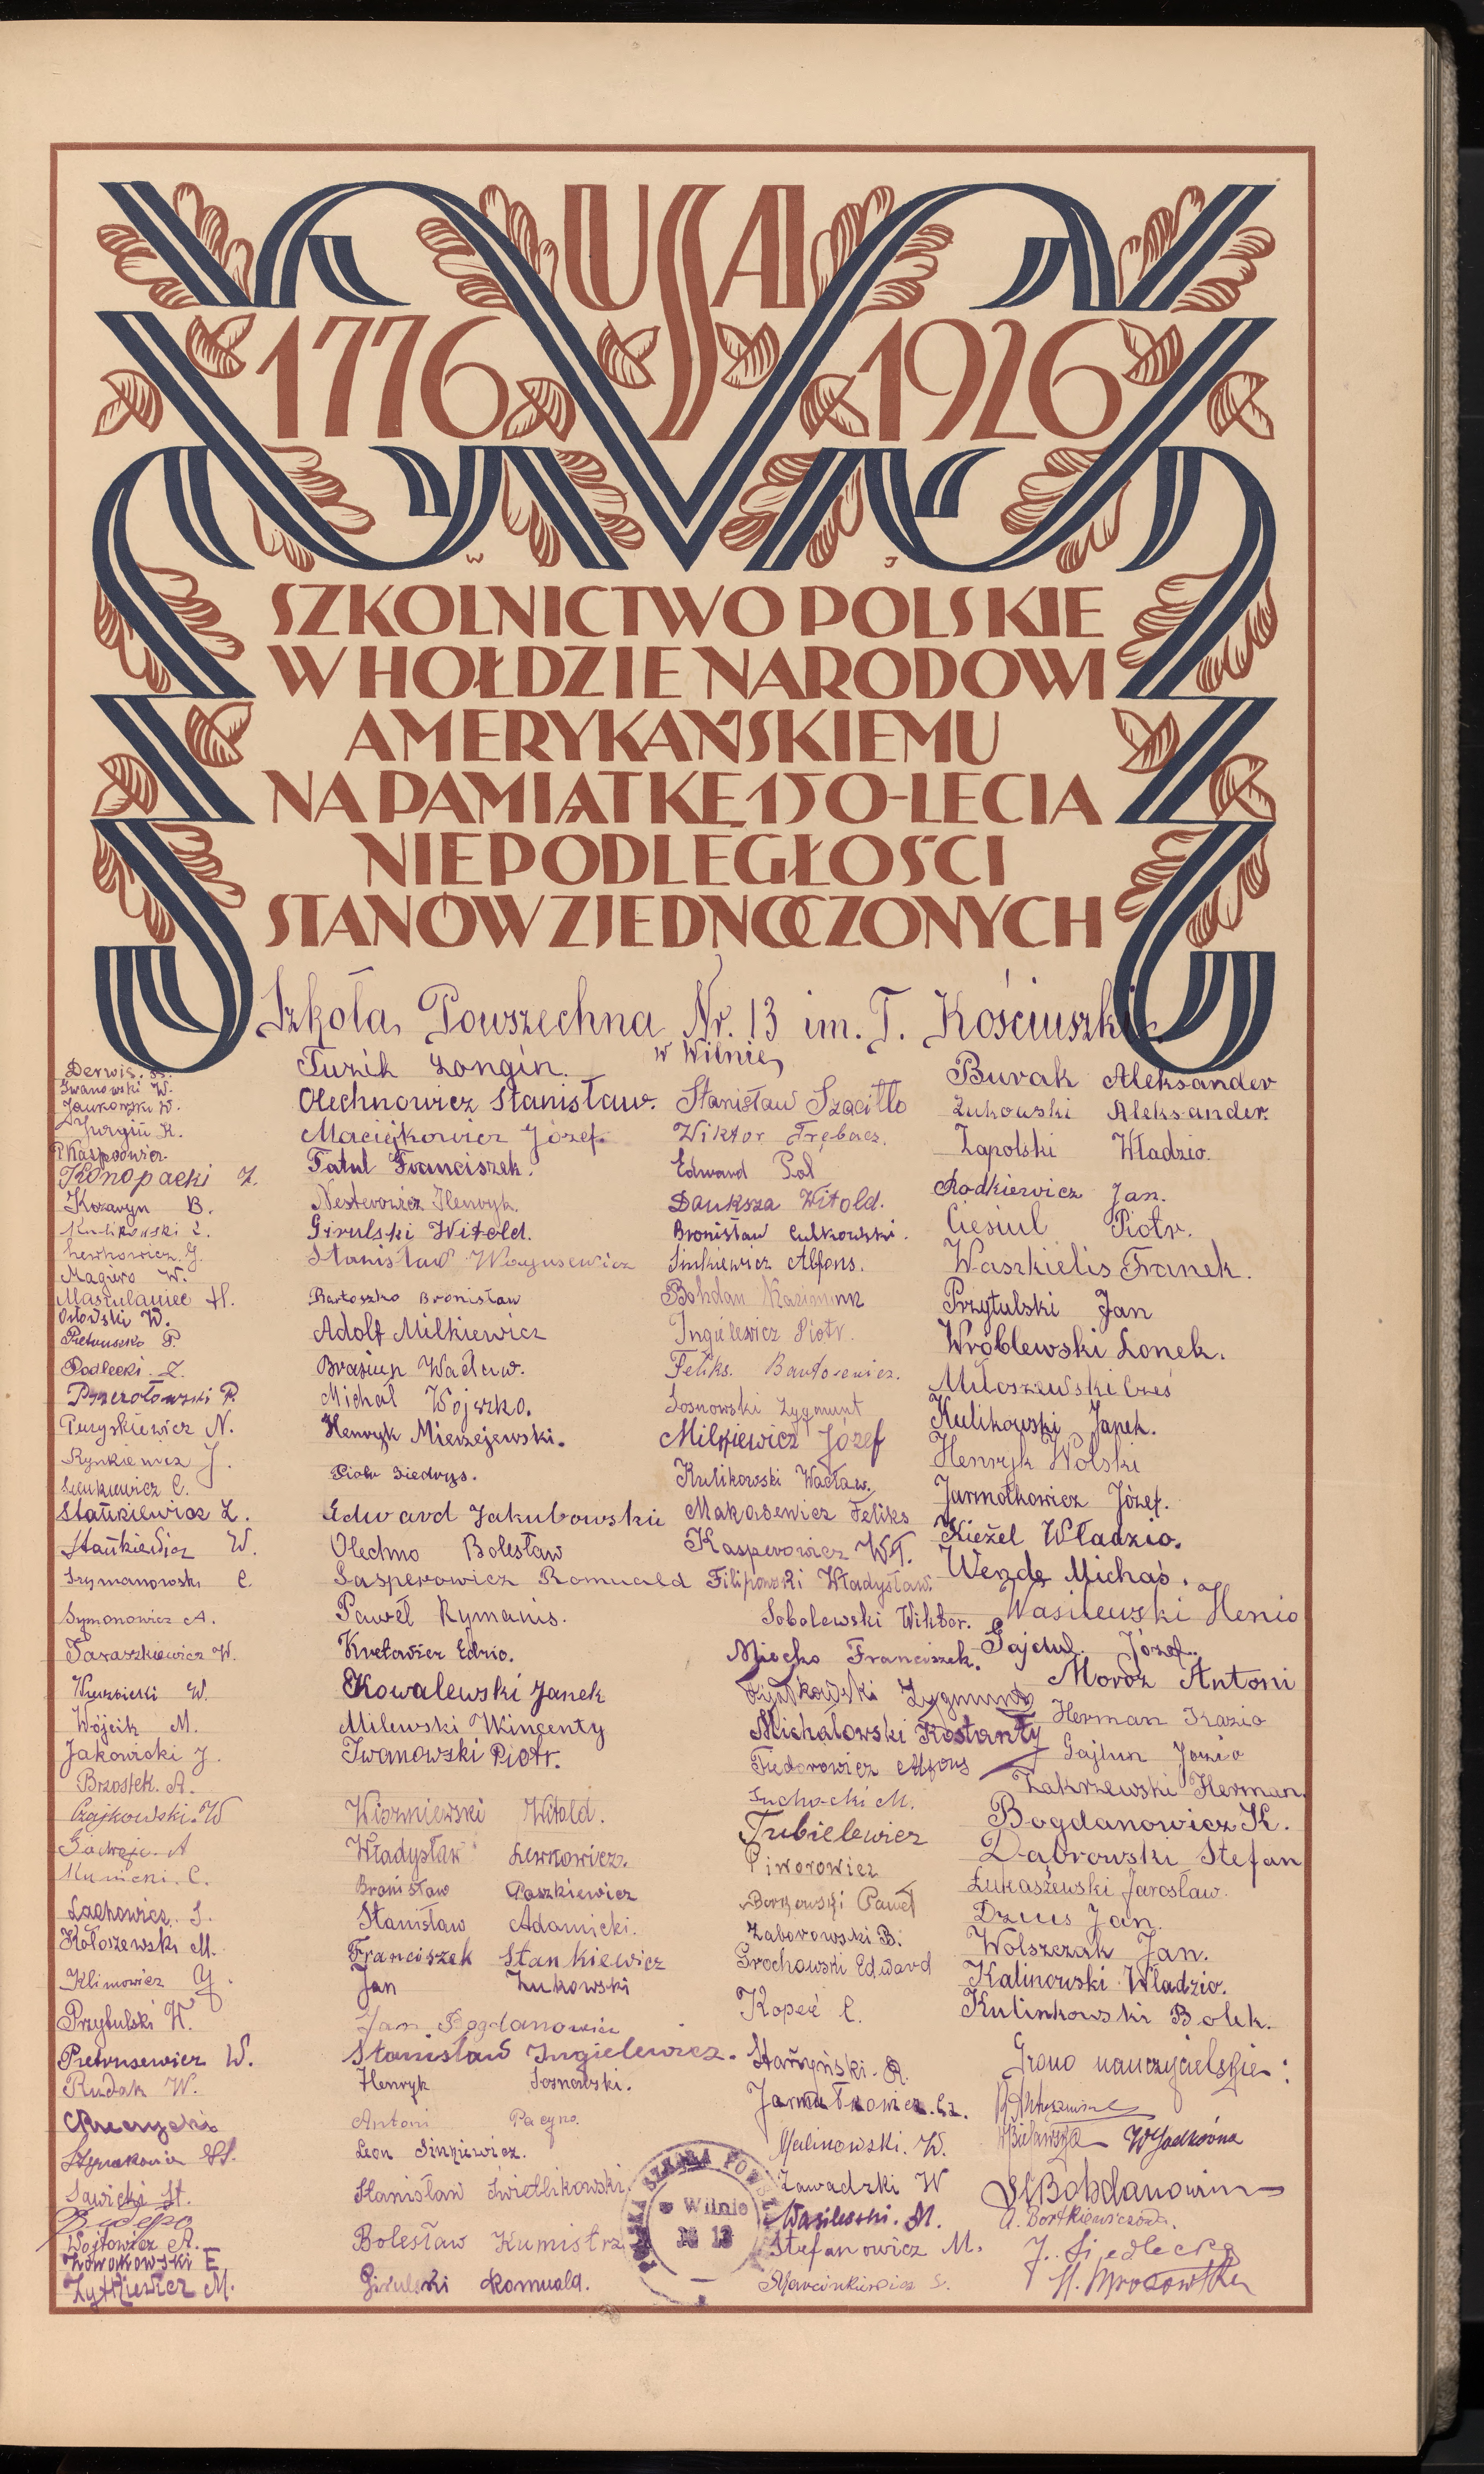 USA
1776 1926
W J
SZKOLNICTWO POLSKIE
W HOŁDZIE NARODOWI
AMERYKAŃSKIEMU
NA PAMIĄTKĘ 150-LECIA
NIEPODLEGŁOŚCI
STANÓW ZJEDNOCZONYCH
Szkoła Powszechna Nr. 13 im. T. Kościuszki
w Wilnie
Derwis.
Iwanowski W.
Jankowski W.
Jurgin K.
Kasperowicz
Konopacki Z.
Kozaryn B.
Kulikowski
Lewkowicz J.
Magiero W.
Maszulaniec H.
Orłowski W.
Pietruszko P.
Podlecki Z.
Przezołowski P.
Puryskiewicz N.
Rynkiewicz J.
Sienkiewicz C.
Stańkiewicz Z.
Stańkiewicz W.
Szymanowski C.
Symonowicz A.
Taraszkiewicz W.
Wierzbicki W.
Wójcik M.
Jakowicki J.
Brzostek. A.
Czajkowski. W
A
Kunicki. C.
Lachowicz. S.
Kołoszewski M.
Klimowicz
Przytulski W.
Pietrusewicz W.
Rudak W.
Sawicki St.
Wojtowicz A.
Nowakowski E
Żytkiewicz M.
Turik Longin.
Olechnowicz Stanisław.
Maciejkowicz Józef.
Tatul Franciszek.
Nesterowicz Henryk.
Girulski Witold.
Stanisław
Bartoszko Bronisław
Adolf Milkiewicz
Wacław.
Michał Wojszko.
Henryk Mierzejewski.
Piotr Siedrys.
Edward Jakubowski
Olechno Bolesław
Gasperowicz Romuald
Paweł Rymanis.
Edzio.
Kowalewski Janek
Milewski Wincenty
Iwanowski Piotr.
Witold.
Władysław Lewkowicz.
Bronisław Paszkiewicz
Stanisław Adamicki.
Franciszek Stankiewicz
Jan Żukowski
Jan Bogdanowicz
Stanisław Ingielewicz.
Henryk Sosnowski.
Antoni Pacyno.
Leon Sinkiewicz.
Stanisław Świetlikowski
Bolesław Kumistrz
Girulski Romuald.
Stanisław Szaciłło
Wiktor Trębacz.
Edward Pol
Dauksza Witold.
Bronisław Culkowski.
Sinkiewicz Alfons.
Bohdan Kazimierz
Ingielewicz Piotr.
Feliks. Bartosewicz.
Sosnowski Zygmunt
Milkiewicz Józef
Kulikowski Wacław.
Makasewicz Feliks
Kasperowicz Wł.
Filipowski Władysław.
Sobolewski Wiktor.
Miećko Franciszek.
Zygmunt
Michałowski Kostanty
Fiedorowicz Alfons
Suchocki M.
Tubielewicz
Piworowicz
Borkowski Paweł
Zaborowski B.
Grochowski Edward
Kopeć C.
Starzyński. R.
Jarmułkowicz. Cz.
Malinowski. W.
Zawadzki W
Wasilewski. M.
Stefanowicz M.
Marcinkiewicz S.
Burak Aleksander
Żukowski Aleksander.
Zapolski Władzio.
Rodkiewicz Jan.
Ciesiul Piotr.
Waszkielis Franek.
Przytulski Jan
Wróblewski Lonek.
Miłoszewski Cześ
Kulikowski Janek.
Henryk Wolski
Jarmołkowicz Józef.
Kieżel Władzio.
Wenda Michaś.
Wasilewski Henio
Gajdul. Józef.
Moroz Antoni
Herman Kazio
Gajlun Józio
Zakrzewski Herman.
Bogdanowicz K.
Dąbrowski Stefan
Łukaszewski Jarosław.
Dzius Jan.
Wolszczak Jan.
Kalinowski Władzio.
Kulinkowski Bolek.
Grono nauczycielskie:
W Sadkówna
St Bohdanowicz
A. Bortkiewiczówna.
J. Siedlecka
SZKOŁA POW
w Wilnie
№ 13